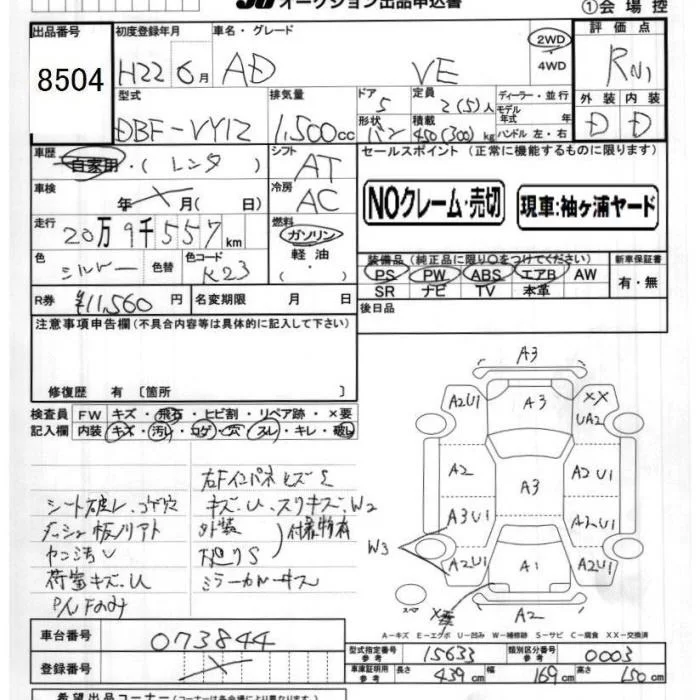 オークション出品申込書
①会場控
出品番号
8504
初度登録年月
H22 6月
車名・グレード
AD VE
2WD
・
4WD
評価点
RN1
型式
DBF-VY12
排気量
1,500cc
ドア
5
形状
バン
定員
2(5)人
積載
450(300)kg
ディーラー・並行
モデル
年式 年
ハンドル 左・右
外装 内装
D D
車歴
自家用・(レンタ)
シフト
AT
セールスポイント (正常に機能するものに限ります)
車検
年 月( 日)
冷房
AC
NOクレーム・売切
現車:袖ヶ浦ヤード
走行
20万9千557km
燃料
ガソリン
軽油
・( )
色
シルバー
色替
色コード
K23
装備品(純正品に限り○をつけてください)
PS PW ABS エアB AW
SR ナビ TV 本革
新車保証書
有・無
R券 ¥11,560 円
名変期限 月 日
後日品
注意事項申告欄(不具合内容等は具体的に記入して下さい)
修復歴 有〔箇所 〕
検査員
記入欄
FW キズ・飛石・ヒビ割・リペア跡・×要
内装 キズ・汚レ・コゲ・穴・スレ・キレ・破レ
シート破レ.コゲ穴
荷室キズ.U
右Fインパネビズミ
キズ.U.スリキズ.W2
外装
付着物有
ミラーカバーキズ
A3
A2U1
A3
XX
UA2
A2
A3
A2U1
A3U1
A2U1
W3
A2U1
A1
A2U1
スペア
A2
A-キズ E-エクボ U-凹み W-補修跡 S-サビ C-腐食 XX-交換済
車台番号
073844
登録番号
型式指定番号
参考
15633
類別区分番号
参考
0003
車庫証明用
参考
長さ
439cm
幅
169cm
高さ
150cm
希望出品コーナー(コーナーは各会場により異なります)